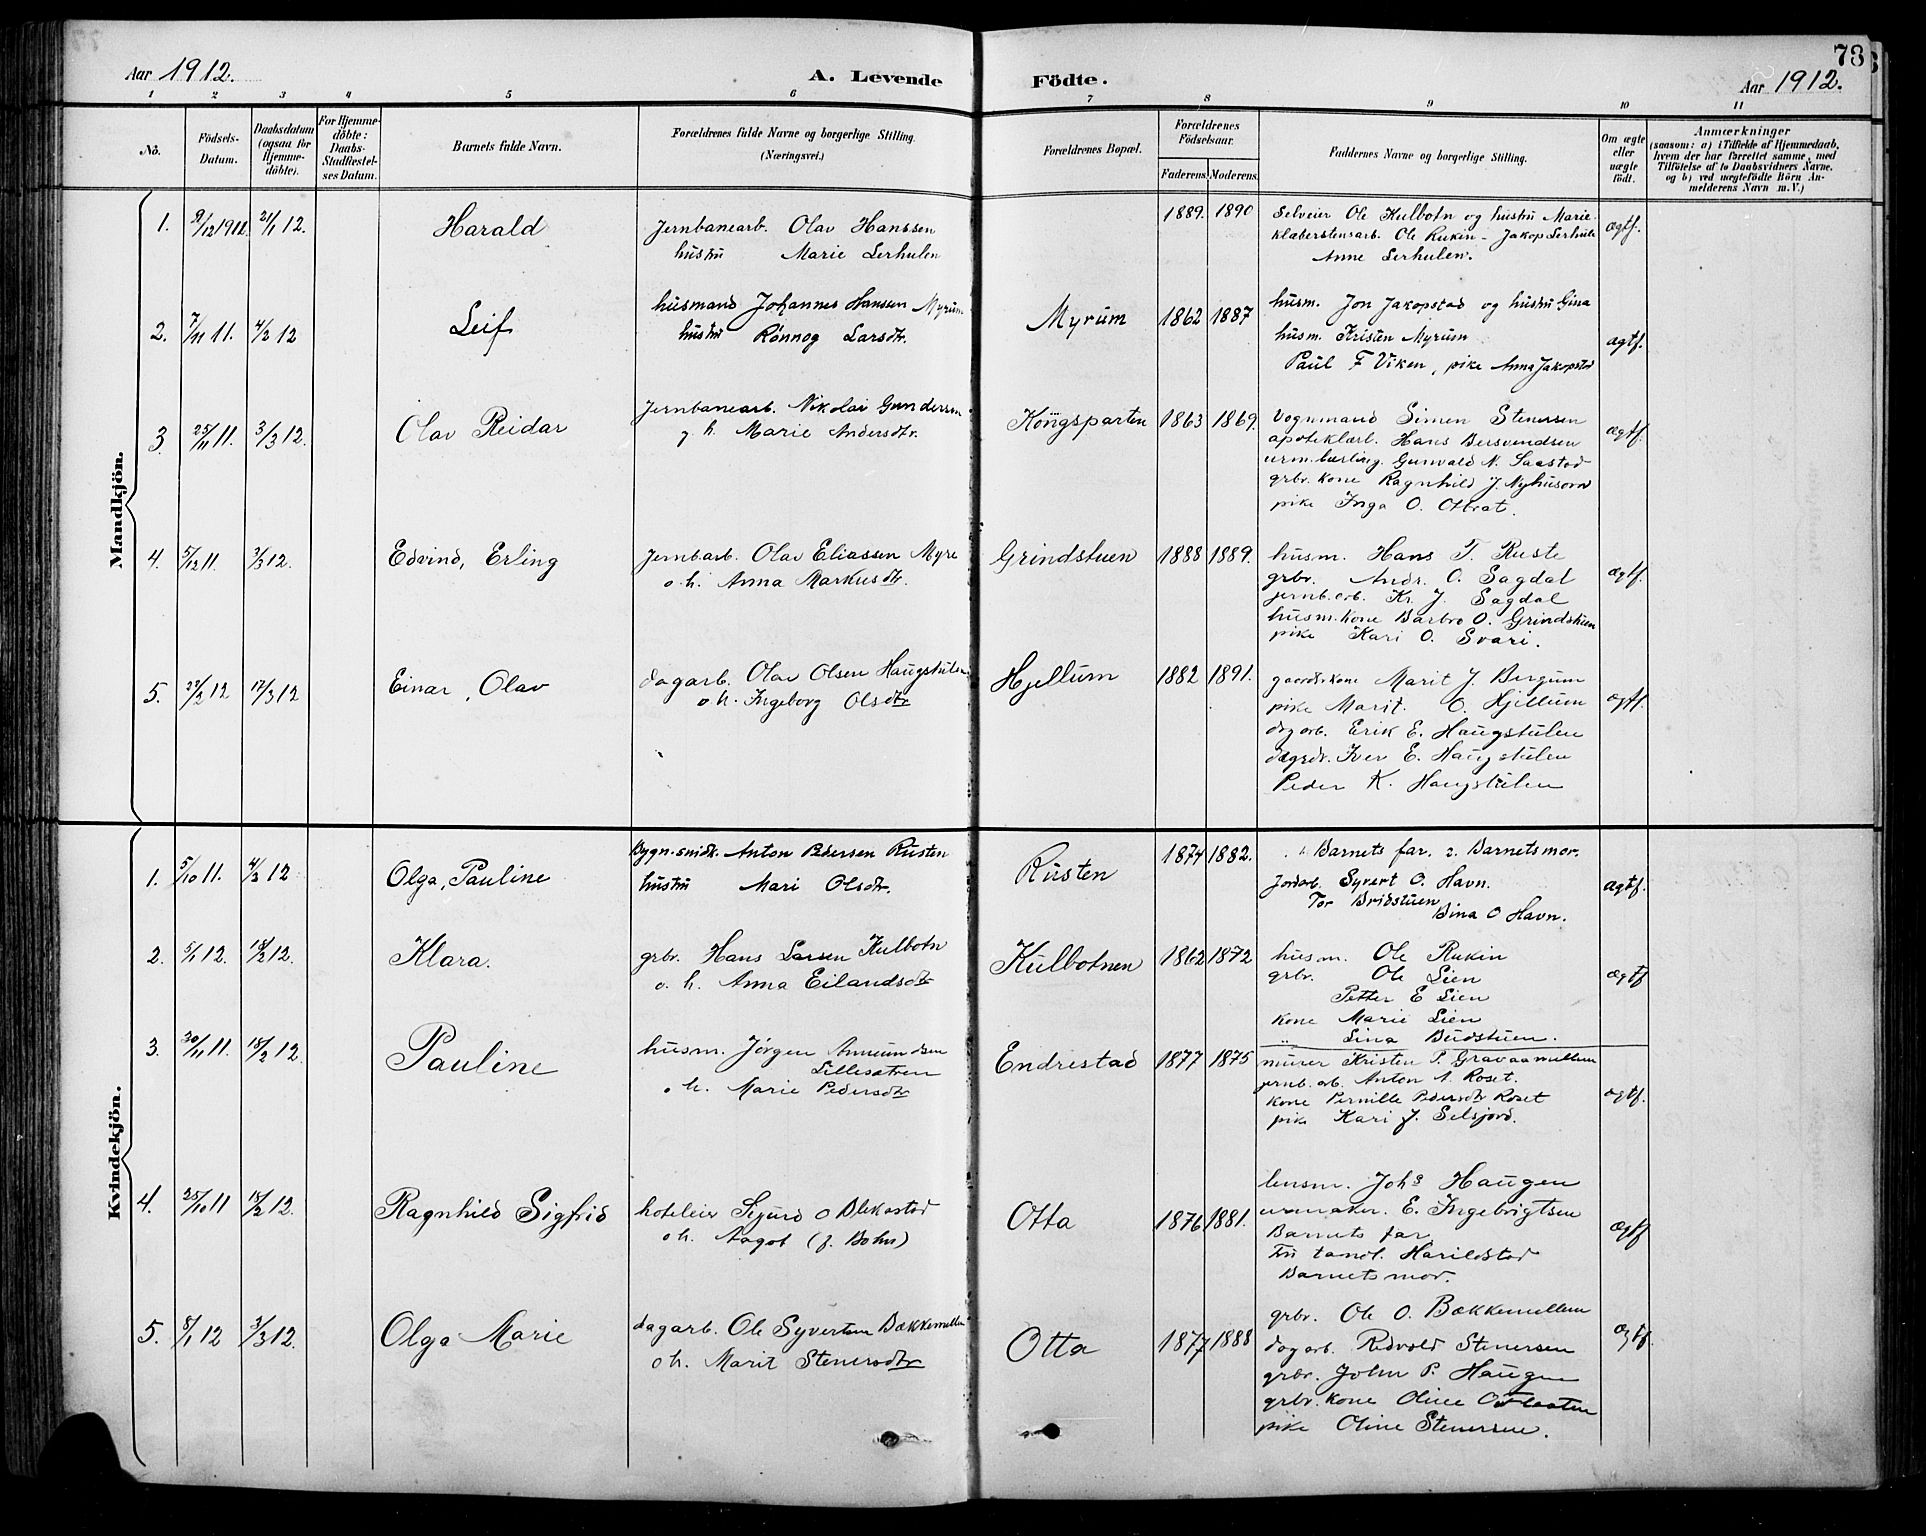 73
Aar 1912.
A. Levende
Födte.
Aar 1912.
1 2 3 4 5 6 7 8 9 10 11
No.
Födsels-Datum.
Daabsdatum (ogsaa for Hjemmedöbte).
For Hjemmedöbte: Daabs-Stadfæstelses Datum.
Barnets fulde Navn.
Forældrenes fulde Navne og borgerlige Stilling. (Næringsvei.)
Forældrenes Bopæl.
Forældrenes Födselsaar.
Faderens. Moderens.
Faddernes Navne og borgerlige Stilling.
Om ægte eller uægte födt.
Anmærkninger
(saasom: a) i Tilfælde af Hjemmedaab, hvem der har forrettet samme, med Tilföielse af to Daabsvidners Navne, og b) ved uægtefödte Börn Anmelderens Navn m.V.)
Mandkjön.
1. 9/12 1911. 21/1 12. Harald
Jernbanearb. Olav Hanssen
hustru Marie Lerhulen
1889. 1890
Selveier Ole Kulbotn og hustru Marie
klæberstensarb. Ole Rukin - Jakop Lerhule
Anne Lerhulen.
ægtf.
2. 7/11 11. 4/2 12 Leif
husmand Johannes Hanssen Myrum
hustru Rønnog Larsdtr.
Myrum 1862 1887
husm. Jon Jakopstad og hustru Gina
husm. Kristen Myrum
Paul F Viken, pike Anna Jakopstad
ægtf.
3 25/11 11. 3/3 12. Olav Reidar
Jernbanearb. Nikolai Gundersen
g. h. Marie Andersdtr.
Kongsparten 1863 1869.
Vognmand Simen Stenersen
apoteklærl. Hans Bersvendsen
urm.lærling. Gunvald N. Saastad
grbr. kone Ragnhild J. Nyhusorn
pike Inga O. Ottrat.
ægtf.
4. 5/12 11. 3/3 12. Edvind, Erling
Jernbarb. Olav Eliassen Myre
o. h. Anna Markusdtr.
Grindstuen 1888 1889.
husm. Hans T. Ruste
grbr. Andr. O. Sagdal
jernb.arb. Kr. J. Sagdal
husm.kone Barbro O. Grindstuen
pike Kari O. Svari.
ægtf.
5. 27/2 12 17/3 12 Einar, Olav
dagarb. Olav Olsen Haugstulen
o h. Ingeborg Olsdtr
Hjellum 1882 1891.
gaardbr.kone Marit J. Bergum
pike Marit. O. Hjellum
dagarb. Erik E. Haugstulen
Iver E. Haugstulen
Peder K. Haugstulen
ægtf.
Kvindekjön.
1. 5/10 11. 4/2 12 Olga, Pauline
Bygn.snidk. Anton Pedersen Rusten
hustru Mari Olsdtr.
Rusten 1874 1882.
1. Barnets far. 2. Barnets mor.
Jordarb. Syvert O. Havn.
Tor Bridstuen
Bina O Havn.
ægtf.
2. 5/1 12. 18/2 12. Klara.
grbr. Hans Larsen Kulbotn
o. h. Anna Eilandsdtr
Kulbotnen 1862 1872
husm. Ole Rukin
grbr. Ole Lien
Petter E Lien
kone Marie Lien
" Lina Budstuen.
ægtf
3. 30/11 11. 18/2 12. Pauline
husm. Jørgen Amundsen
Lillesætren
o h. Marie Pedersdtr
Endrestad 1877 1875
murer Kristen P. Gravaamellem
jernb. arb. Anton A. Roset.
kone Pernille Pedersdtr Roset
pike Kari J. Selsjord.
ægtf.
4. 25/10 11 18/2 12. Ragnhild Sigfrid
hoteleier Sigurd O Blekastad
o h. Aagot (f. Bohn)
Otta 1876 1881.
lensm. Johs Haugen
urmaker. E. Ingebrigtsen
Barnets far
Fru tandl. Harildstad
Barnets mor.
ægtf
5. 8/1 12 3/3 12. Olga Marie
dagarb. Ole Syversen Bækkemellem
o h. Marit Stenersdtr
Otta 1877 1888
grbr. Ole O. Bækkemellem
dagarb. Redvald Stenersen
grbr. John P. Haugen
grbr. kone Oline O Flaaten
pike Oline Stenersen.
ægtf.